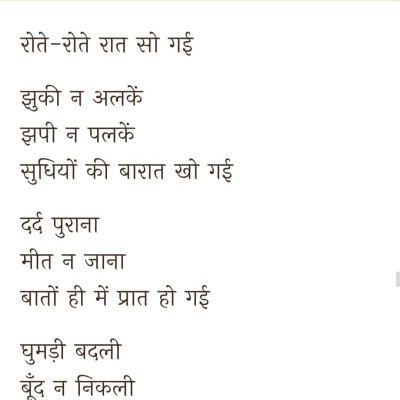 रोते-रोते रात सो गई
झुकी न अलकें
झपी न पलकें
सुधियों की बारात खो गई
दर्द पुराना
मीत न जाना
बातों ही में प्रात हो गई
घुमड़ी बदली
बूँद न निकली